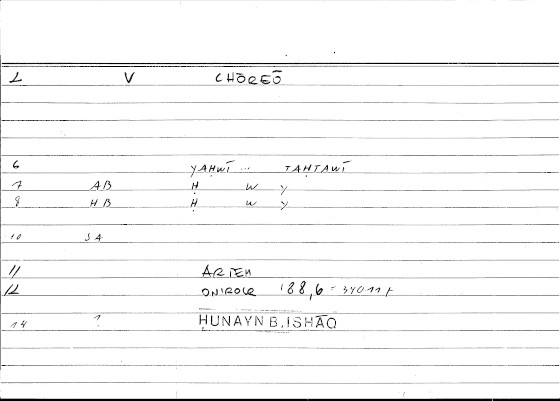 1 V CHŌREŌ
6 YAḤWĪ ... TAḤTAWĪ
7 AB Ḥ W Y
8 HB Ḥ W Y
10 SA
11 ARTEM
12 ONIROCR 188,6 = 340 11 f
14 ? ḤUNAYN B. ISḤĀQ